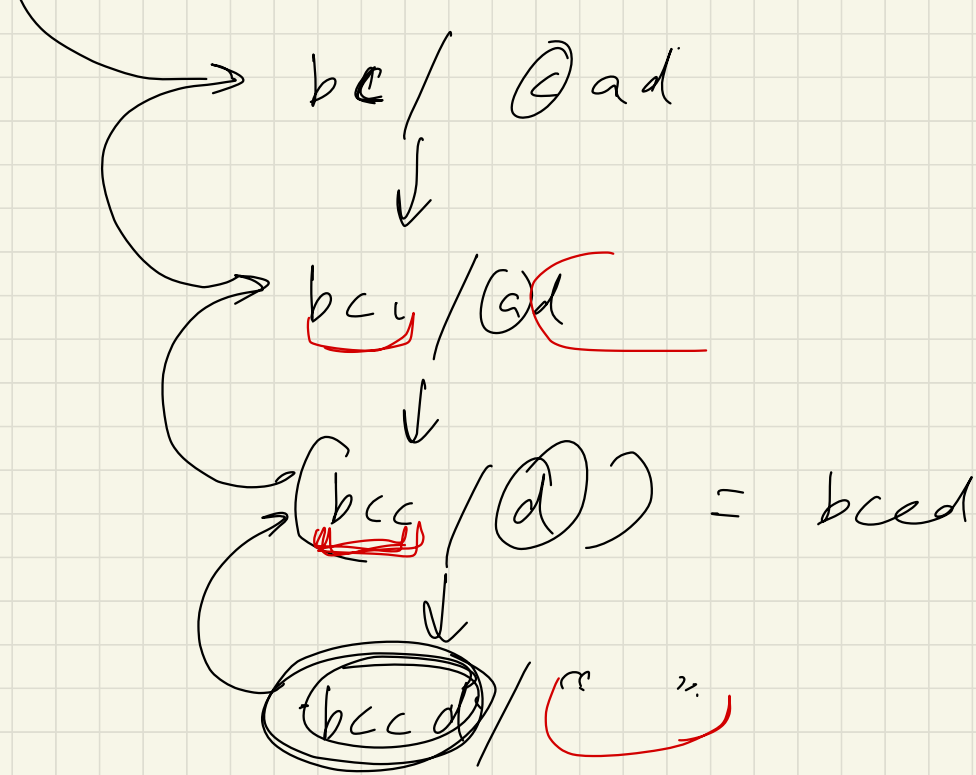 bc / cad
bcc / ad
(bcc / d) = bccd
bccd / " "